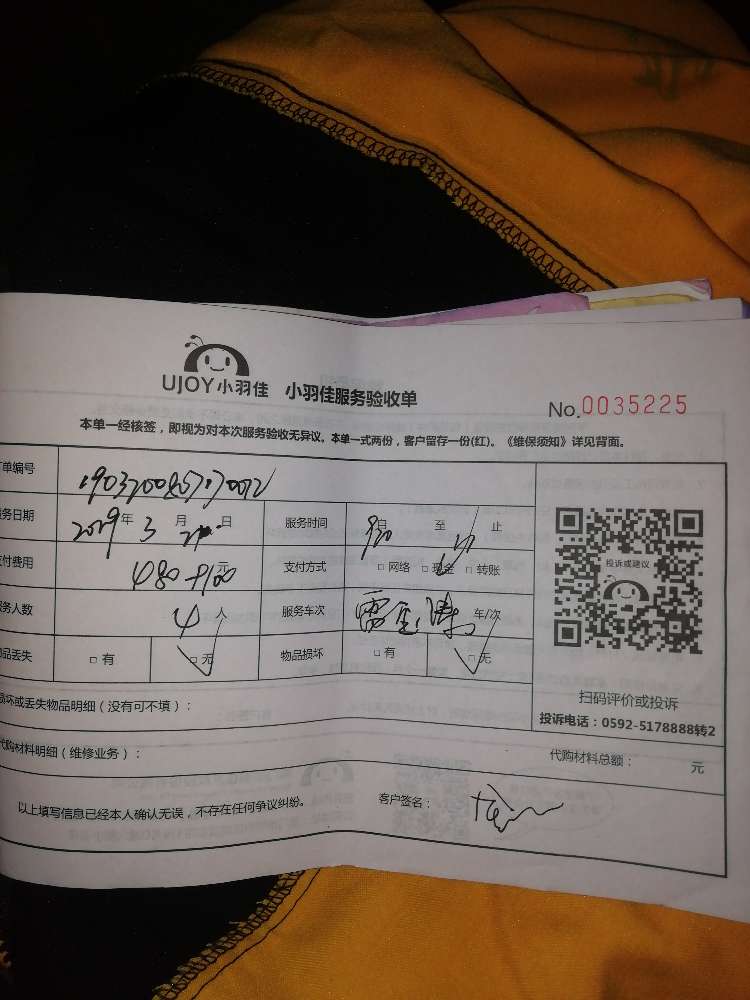 UJOY小羽佳 小羽佳服务验收单
No.0035225
本单一经核签，即视为对本次服务验收无异议。本单一式两份，客户留存一份(红)。《维保须知》详见背面。
单编号
务日期 2019年 3 月 日 服务时间 自 至 止
付费用 480+100 元 支付方式 □ 网络 □ 现金 □ 转账
务人数 4 人 服务车次 车/次
品丢失 □ 有 □ 无 物品损坏 □ 有 □ 无
投诉或建议
扫码评价或投诉
投诉电话：0592-5178888转2
损坏或丢失物品明细（没有可不填）：
代购材料明细（维修业务）：
代购材料总额： 元
以上填写信息已经本人确认无误，不存在任何争议纠纷。 客户签名：